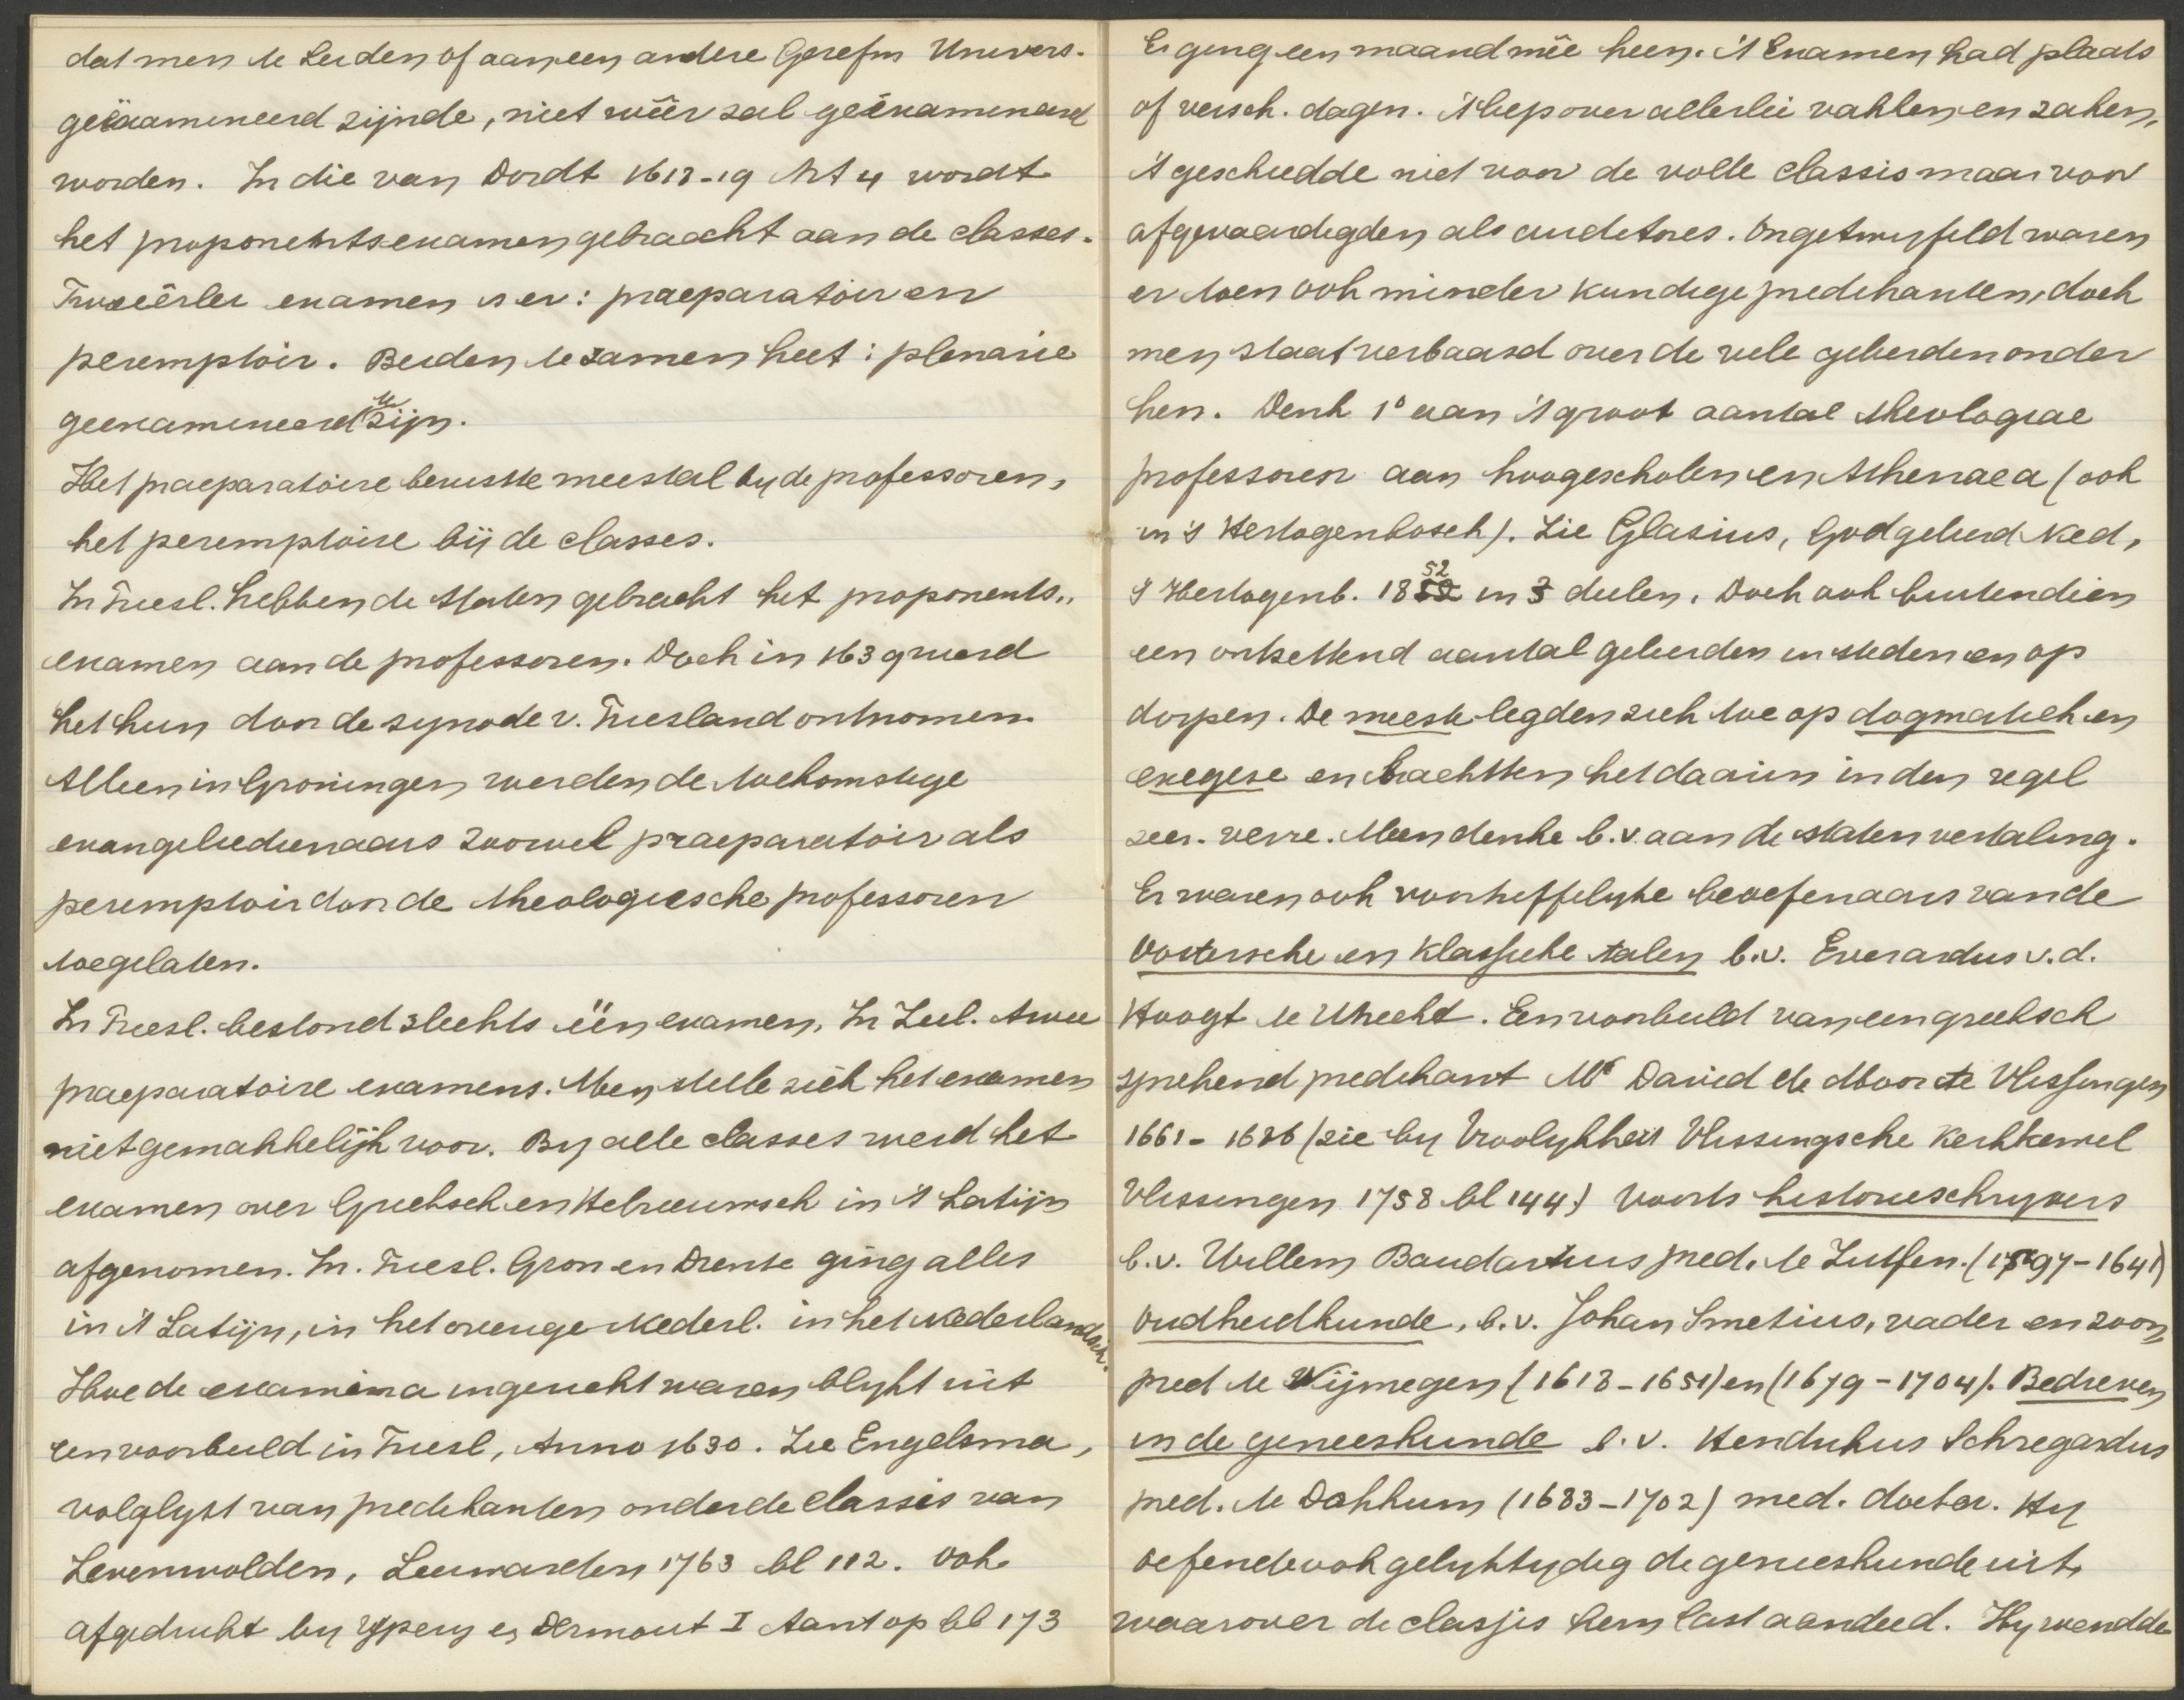 dat men te Leiden of aan een andere Gerefm Univers.
geëxamineerd zijnde, niet wêêr zal geëxamineerd
worden. In die van Dordt 1618-19 Art 4 wordt
het proponentsexamen gebracht aan de classes.
Tweeërlei examen is er: praeparatoir en
peremptoir. Beiden te zamen heet: plenarie
geexamineerd te zijn.
Het praeparatoire berustte meestal by de professoren,
het peremptoire bij de classes.
In Friesl. hebben de Staten gebracht het proponents..
examen aan de professoren. Doch in 1639 werd
het hun door de synode v. Friesland ontnomen.
Alleen in Groningen werden de toekomstige
evangeliedienaars zoowel praeparatoir als
peremptoir door de theologiesche professoren
toegelaten.
In Friesl. bestond slechts één examen. In Zeel. twee
praeparatoire examens. Men stelle zich het examen
niet gemakkelijk voor. By alle classes werd het
examen over Grieksch en Hebreeuwsch in 't Latijn
afgenomen. In. Friesl. Gron en Drente ging alles
in 't Latijn, in het overige Nederl. in het Nederlandsch.
Hoe de examina ingericht waren blykt uit
een voorbeeld in Friesl, Anno 1630. Zie Engelsma,
volglyst van predikanten onder de classis van
Zevenwolden, Leeuwarden 1763 bl 112. Ook
afgedrukt by Ypeij en Dermout I Aant op bl 173
Er ging een maand mêe heen. 't Examen had plaats
op versch. dagen. 't Liep over allerlei vakken en zaken,
't geschiedde niet voor de volle classis maar voor
afgevaardigden als auditores. Ongetwyfeld waren
er toen ook minder kundige predikanten, doch
men staat verbaasd over de vele geleerden onder
hen. Denk 1° aan 't groot aantal theologiae
professoren aan hoogescholen en Athenaea (ook
in 's Hertogenbosch). Zie Glasius, Godgeleerd Ned,
's Hertogenb. 1852 in 3 deelen. Doch ook buitendien
een ontzettend aantal geleerden in steden en op
dorpen. De meeste legden zich toe op dogmatiek en
exegese en brachtten het daarin in den regel
zeer. verre. Men denke b.v. aan de statenvertaling.
Er waren ook voortreffelyke beoefenaars van de
Oostersche en klassieke talen b.v. Everardus v.d.
Hoogt te Utrecht. Een voorbeeld van een grieksch
sprekend predikant Mr David de Moor te Vlissingen
1661-1686 (zie by Vroolykheit Vlissingsche Kerkhemel
Vlissingen 1758 bl 144.) Voorts historieschryvers
b.v. Willem Baudartius pred. te Zutfen. (1597-1641)
Oudheidkunde, b.v. Johan Smetius, vader en zoon,
pred te Nijmegen (1618-1651) en (1679-1704). Bedreven
in de geneeskunde b.v. Hendrikus Schregardus
pred. te Dokkum (1683-1702) med. doctor. Hy
oefende ook gelyktydig de geneeskunde uit,
waarover de classis hem last aandeed. Hy wendde